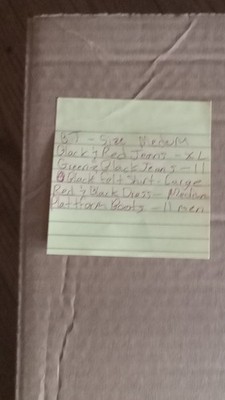 BJ - Size Medium
Black & Red Jeans - XL
Green & Black Jeans - 11
Black felt Shirt - Large
Red & Black Dress - Medium
Platform Boots - 11 men